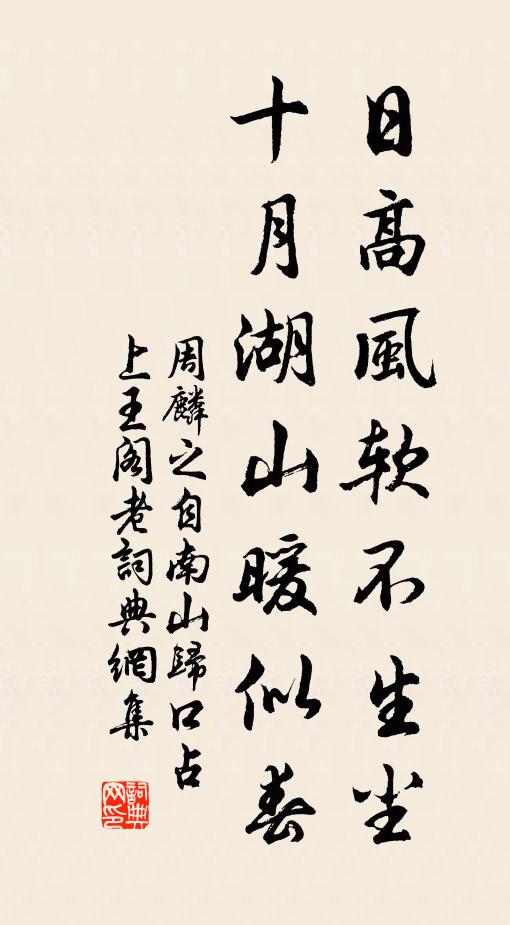 日高風軟不生尘
十月湖山暖似春
周麟之自南山歸口占
上王阁老詞典網集
詞典网印